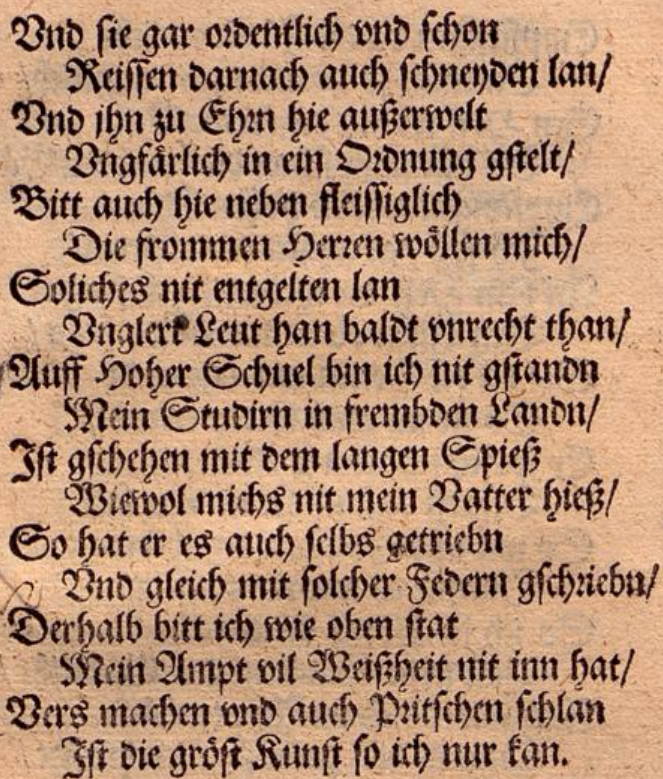 Vnd sie gar ordentlich vnd schon
Reissen darnach auch schneyden lan/
Vnd jhn zu Ehrn hie außerwelt
Vngfärlich in ein Ordnung gstelt/
Bitt auch hie neben fleissiglich
Die frommen Herren wöllen mich/
Soliches nit entgelten lan
Vnglert Leut han baldt vnrecht than/
Auff Hoher Schuel bin ich nit gstandn
Mein Studirn in frembden Landn/
Ist gschehen mit dem langen Spieß
Wiewol michs nit mein Vatter hieß/
So hat er es auch selbs getriebn
Vnd gleich mit solcher Federn gschriebn/
Derhalb bitt ich wie oben stat
Mein Ampt vil Weißheit nit inn hat/
Vers machen vnd auch Pritschen schlan
Ist die gröst Kunst so ich nur kan.